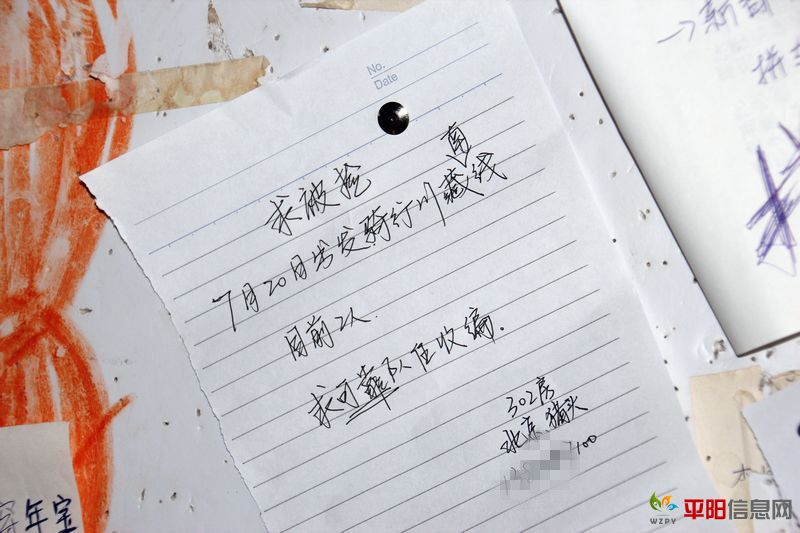 No.
Date
求被捡
南
7月20日出发骑行川藏线
目前2人.
求可靠队伍收编.
302房
北京 猫头
100
→新
拼
年宝
WZPY 平阳信息网